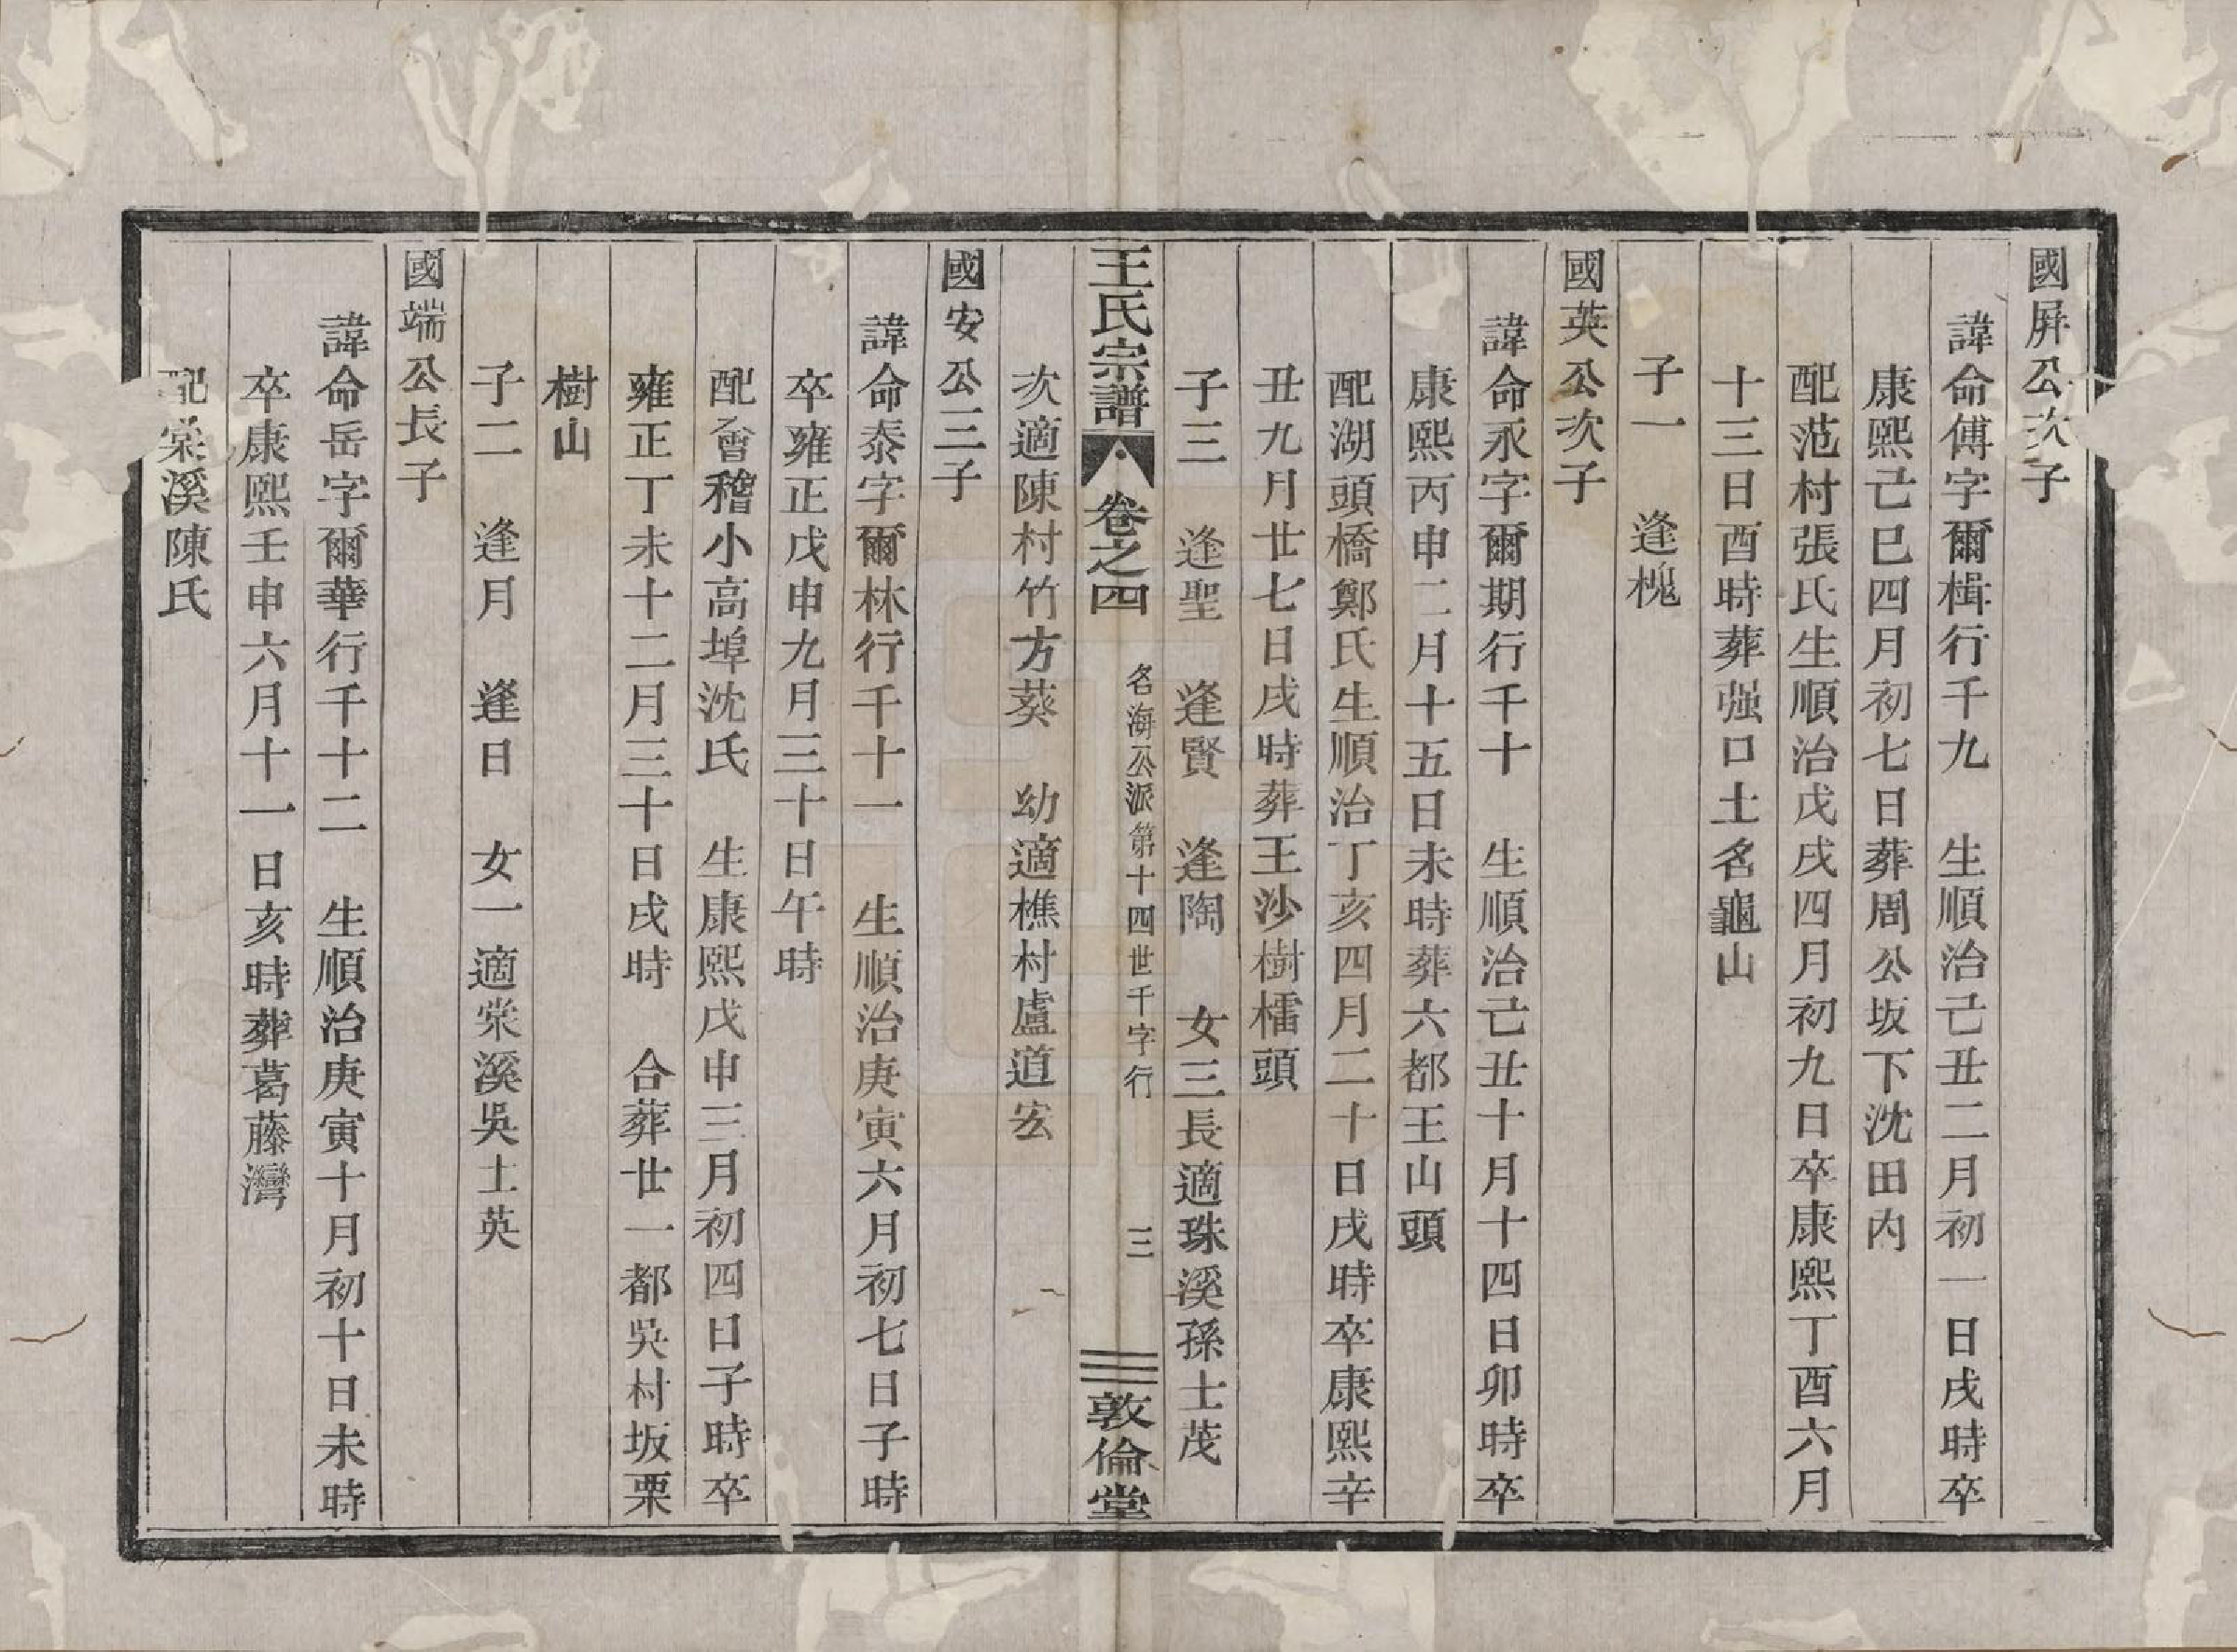 國屏公次子
諱命傅字爾楫行千九　生順治己丑二月初一日戌時卒
康熙己巳四月初七日葬周公坂下沈田内
配范村張氏生順治戊戌四月初九日卒康熙丁酉六月
十三日酉時葬强口土名龜山
子一　逢槐
國英公次子
諱命永字爾期行千十　生順治己丑十月十四日卯時卒
康熙丙申二月十五日未時葬六都王山頭
配湖頭橋鄭氏生順治丁亥四月二十日戌時卒康熙辛
丑九月廿七日戌時葬王沙樹檑頭
子三　逢聖　逢賢　逢陶　女三長適珠溪孫士茂
王氏宗譜　卷之四　名海公派第十四世千字行　三　敦倫堂
次適陳村竹方葵　幼適樵村盧道宏
國安公三子
諱命泰字爾林行千十一　生順治庚寅六月初七日子時
卒雍正戊申九月三十日午時
配會稽小高埠沈氏　生康熙戊申三月初四日子時卒
雍正丁未十二月三十日戌時　合葬廿一都吳村坂栗
樹山
子二　逢月　逢日　女一適棠溪吳士英
國端公長子
諱命岳字爾華行千十二　生順治庚寅十月初十日未時
卒康熙壬申六月十一日亥時葬葛藤灣
配棠溪陳氏